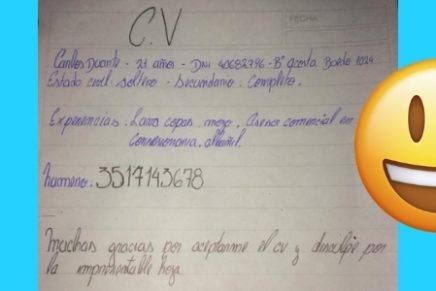 FECHA
C.V
Carlos Duarte - 21 años - DNI 40682796 - B° Acosta Bordo 1024
Estado civil soltero - Secundario: Completo.
Experiencias: Lava copas, mozo, Asesor comercial en
Concesionaria, albañil.
numero: 3517143678
Muchas gracias por aceptarme el cv y disculpe por
la impresentable hoja